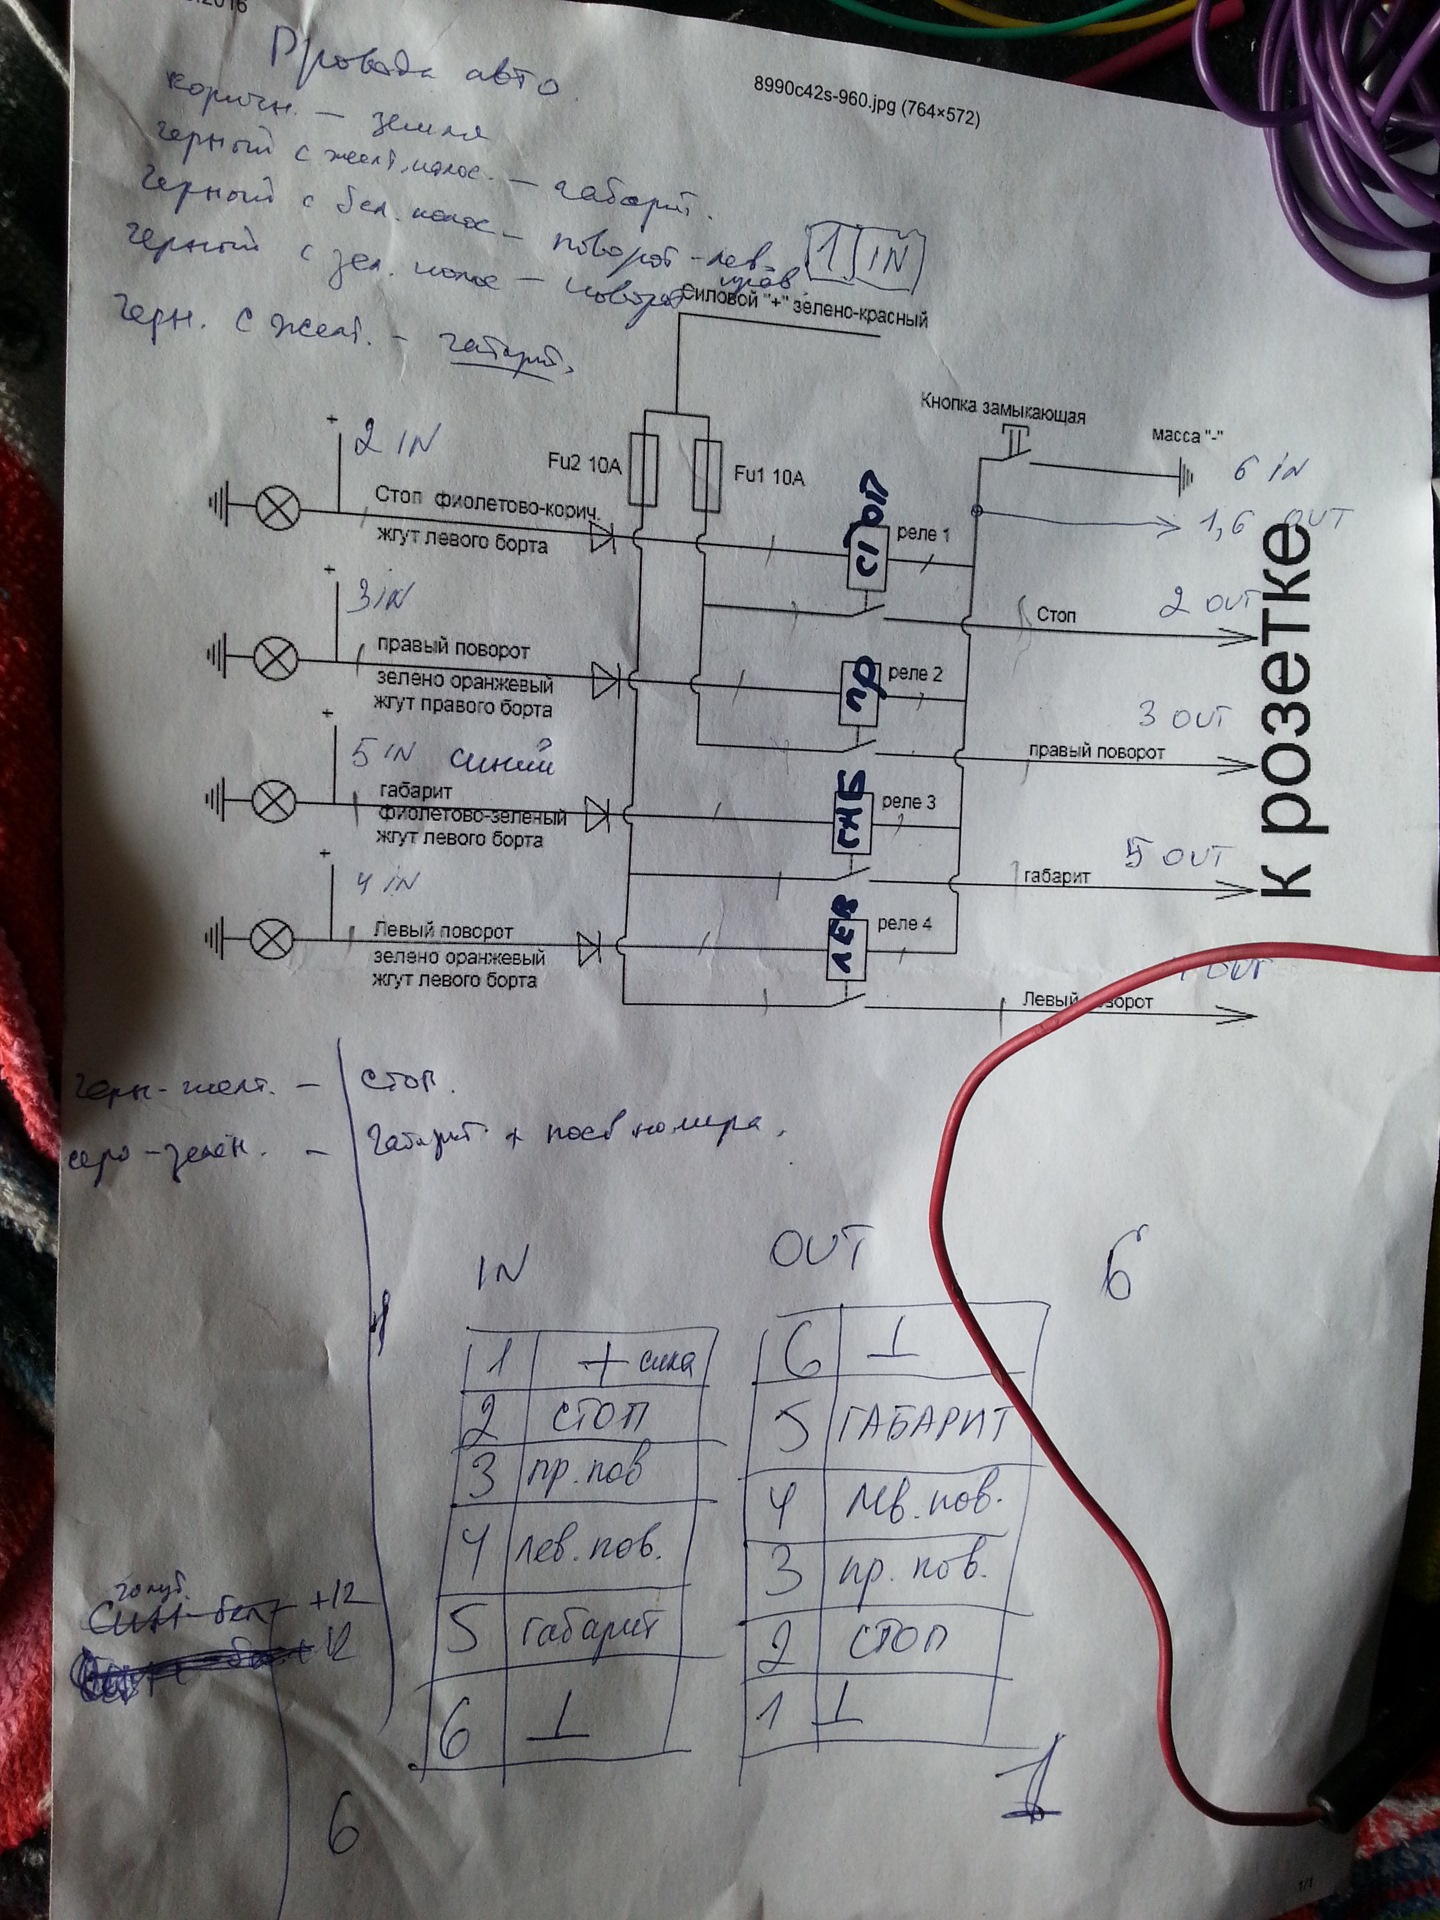 .2016
8990c42s-960.jpg (764×572)
Провода авто.
коричн. – земля
черный с желт. полос. – габарит.
черный с бел. полос – поворот – лев.
черный с зел. полос – поворот прав
черн. с желт. – габарит.
1 IN
силовой "+" зелено-красный
Кнопка замыкающая
масса "-"
6 IN
1,6 OUT
+ 2 IN
Fu2 10A
Fu1 10A
Стоп фиолетово-корич.
жгут левого борта
СТОП
реле 1
Стоп
2 OUT
+ 3 IN
правый поворот
зелено оранжевый
жгут правого борта
ПР
реле 2
правый поворот
3 OUT
+ 5 IN синий
габарит
фиолетово-зеленый
жгут левого борта
ГАБ
реле 3
габарит
5 OUT
+ 4 IN
Левый поворот
зелено оранжевый
жгут левого борта
ЛЕВ
реле 4
Левый оворот
OUT
к розетке
черн-желт. – стоп.
серо-зелен. – Габарит + посв номера.
IN
1 + сила
2 СТОП
3 пр. пов
4 лев. пов.
5 габарит
6 ⊥
OUT
6 ⊥
5 ГАБАРИТ
4 лев. пов.
3 пр. пов.
2 СТОП
1 ⊥
6
голуб.
син-бел +12
12
6
1
1/1